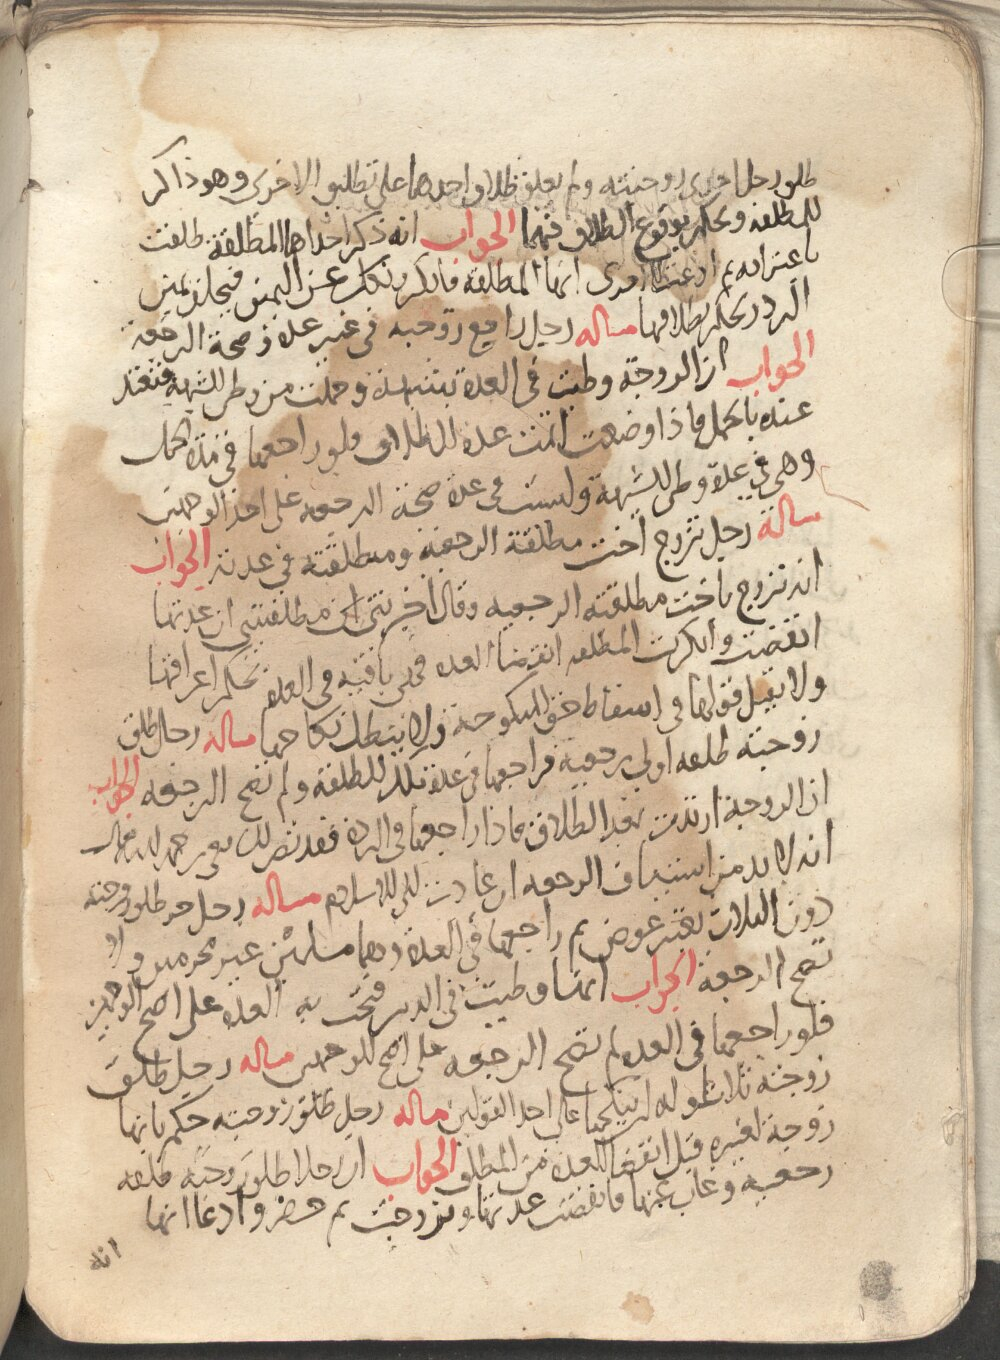 طلق رجل احدى زوجيتيه ولم يعلق طلاق احداهما على تطليق الاخرى وهو ذاكر
للمطلقه ويحكم بوقوع الطلاق فيهما الجواب انه ذكر احداهما المطلقة طلقت
باعترافه ثم ادعت الاخرى انها المطلقة فانكر ونكل عن اليمين فيحلف يمين
الرد ويحكم بطلاقهما مساله رجل راجع زوجيه في غير عدة صحة الرجعة
الجواب ان الزوجة وطيت في العدة بشبهة وحملت من وطى الشبهة فتعتد
عنده بالحمل فاذا وضعت اتمت عدة الطلاق فلو راجعها في مدة الحمل
وهي في عدة وطى الشبهة وليست في عدة صحة الرجعه على احد الوجهين
مسالة رجل تزوج اخت مطلقته الرجعية ومطلقته في عدته الجواب
انه تزوج باخت مطلقته الرجعيه وقال اخبرتني مطلقتي ان عدتها
انقضت وانكرت المطلقه انقضا العده فهي باقيه في العده
ولا يقبل قولها في اسقاط حق المنكوحة ولا يبطل نكاحها مساله رجل طلق
زوجته طلقه اولى رجعية فراجعها في عدة تلك الطلقة ولم تصح الرجعه الجواب
ان الزوجة ارتدت بعد الطلاق فاذا راجعها في الردة فقد نص الشافعي رحمه الله تعالى
انه لا بد من استيناف الرجعه ان عادت الى الاسلام مساله رجل حر طلق زوجته
دون الثلاث بغير عوض ثم راجعها في العدة وهما مسلمين غير محرمين ولا
تصح الرجعة الجواب انها وطيت في الدبر فتجب به العده على اصح الوجهين
فلو راجعها في العده لم تصح الرجعه على اصح الوجهين مساله رجل طلق
زوجته ثلاثا وله ان ينكحها على احد القولين مساله رجل طلق زوجته حكم بانها
زوجة لغيره قبل انقضا العده من المطلق الجواب ان رجلا طلق زوجته طلقه
رجعيه وغاب عنها فانقضت عدتها وتزوجت ثم حضر وادعا انها
انه